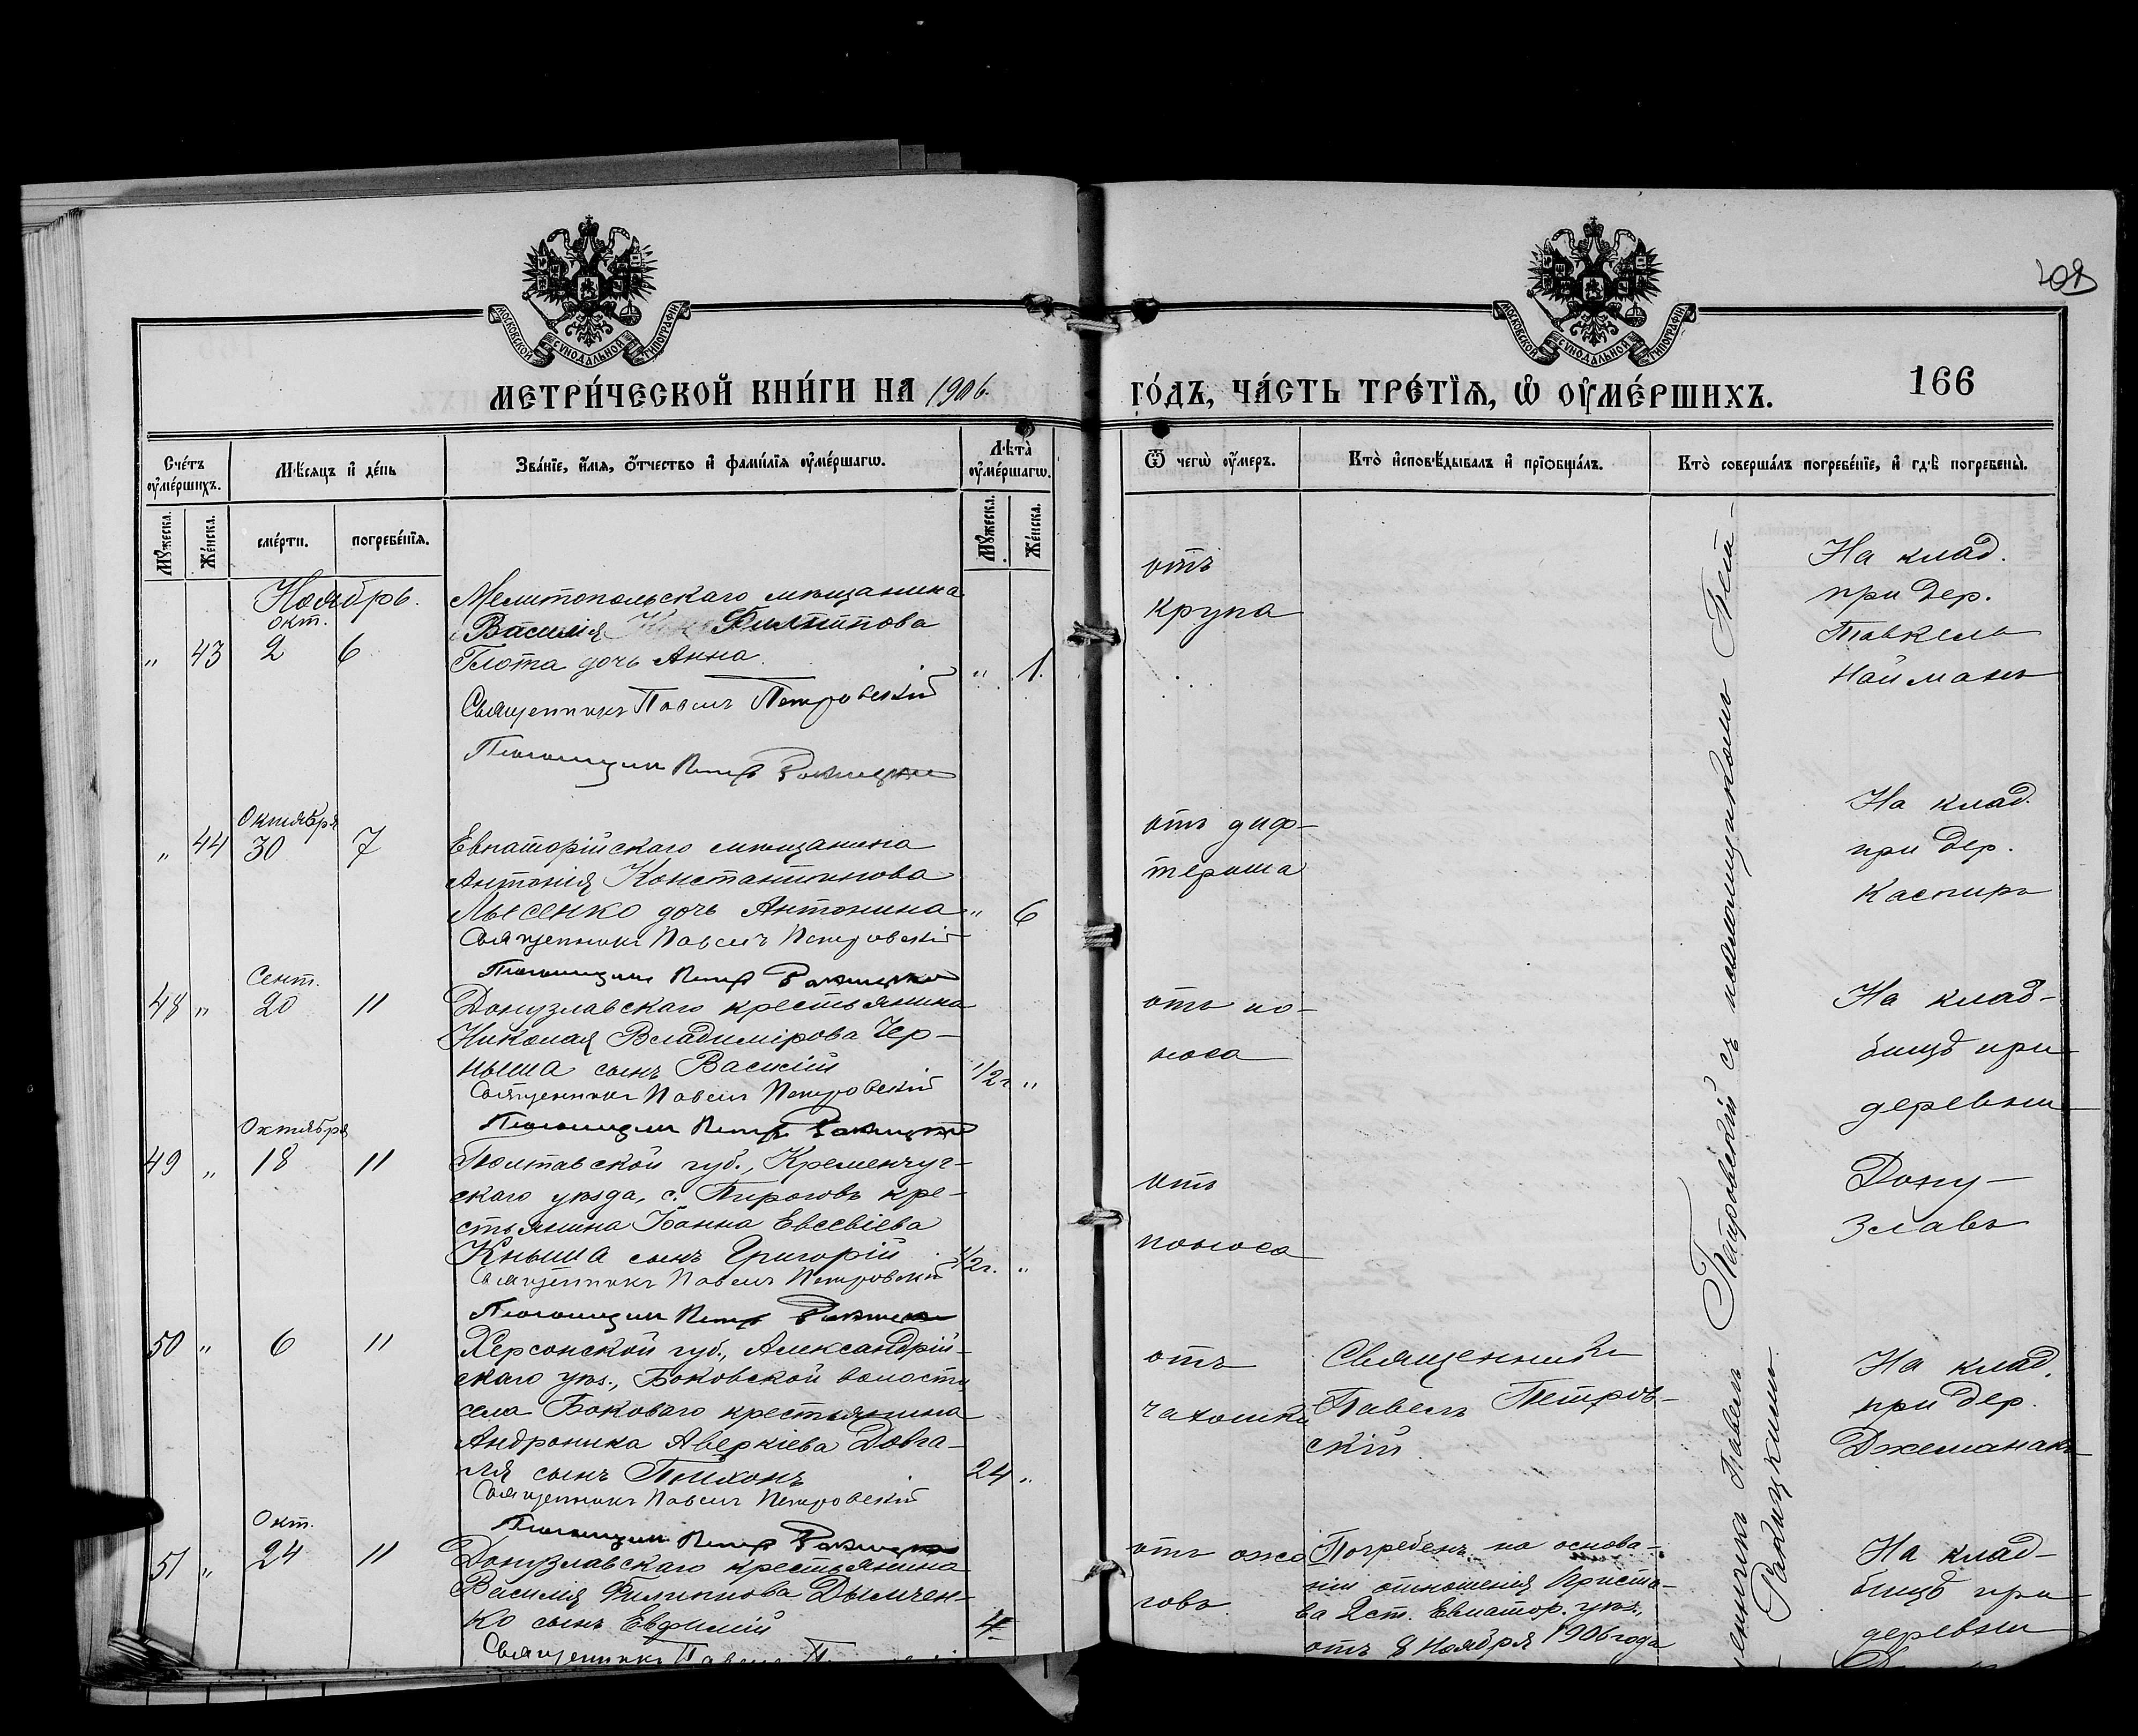 408
МОСКОВСКОЙ СѴНОДАЛЬНОЙ ТИПОГРАФІИ
МОСКОВСКОЙ СѴНОДАЛЬНОЙ ТИПОГРАФІИ
МЕТРИ́ЧЕСКОЙ КНИ́ГИ НА 1906.
ГО́ДЪ, ЧА́СТЬ ТРЕ́ТІѦ, Ѡ҆ ОУ҆МЕ́РШИХЪ.
166
Сче́тъ оу҆ме́ршихъ.
Мѣ́сяцъ и҆ де́нь
Зва́нїе, и҆́мѧ, ѻ҆́тчество и҆ фами́лїѧ оу҆ме́ршагѡ.
Лѣ́та̀ оу҆ме́ршагѡ.
Ѿ чегѡ̀ оу҆́меръ.
Кто̀ и҆сповѣ́дывалъ и҆ прїѡбща́лъ.
Кто̀ соверша́лъ погребе́нїе, и҆ гдѣ̀ погребены̀.
Мꙋ́жеска.
Же́нска.
сме́рти.
погребе́нїѧ.
Мꙋ́жеска.
Же́нска.
Ноябрь.
окт.
" 43 2 6
Мелитопольскаго мѣщанина
Василія Филиппова
Глота дочь Анна.
" 1.
Священникъ Павелъ Петровскій
Псаломщикъ Петръ Ракицкій
отъ
крупа
На клад.
при дер.
Тавкель
Найманъ
Октября
" 44 30 7
Евпаторійскаго мѣщанина
Антонія Константинова
Лысенко дочь Антонина
" 6
Священникъ Павелъ Петровскій
Псаломщикъ Петръ Ракицкій
отъ диф-
терита
На клад.
при дер.
Каспиръ
Сент.
48 " 20 11
Донузлавскаго крестьянина
Николая Владимірова Чер-
ныша сынъ Василій
1/2 г. "
Священникъ Павелъ Петровскій
Псаломщикъ Петръ Ракицкій
отъ по-
носа
На клад-
бищѣ при
деревни
Дону-
злавъ
Октября
49 " 18 11
Полтавской губ., Кременчуг-
скаго уѣзда, с. Пироговъ кре-
стьянина Іоанна Евсевіева
Кныша сынъ Григорій
1/2 г. "
Священникъ Павелъ Петровскій
Псаломщикъ Петръ Ракицкій
отъ
поноса
50 " 6 11
Херсонской губ., Александрій-
скаго уѣз., Боковской волости
села Боковаго крестьянина
Андроника Аверкіева Довга-
ля сынъ Тихонъ
24 "
Священникъ Павелъ Петровскій
Псаломщикъ Петръ Ракицкій
отъ
чахотки
Священникъ
Павелъ Петров-
скій
На клад.
при дер.
Джеманакъ
Окт.
51 " 24 11
Донузлавскаго крестьянина
Василія Филиппова Дымчен-
ко сынъ Евфимій
4
Священникъ Павелъ
отъ ожо
говъ
Погребенъ на основа-
ніи отношенія Приста-
ва 2 ст. Евпатор. уѣз.,
отъ 8 Ноября 1906 года
На клад-
бищѣ при
деревни
Павелъ Петровскій съ псаломщикомъ Пет-
Ракицкимъ.